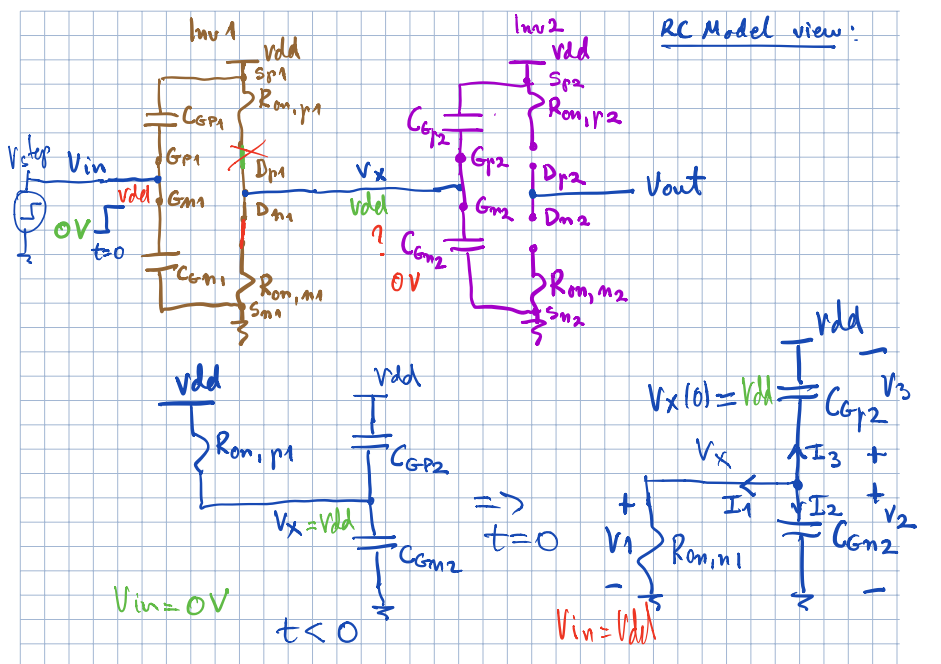 Inv1
Inv2
RC Model view:
Vdd
Sp1
Ron,p1
CGP1
GP1
Dp1
Vstep
Vin
Vdd
Gn1
Dn1
0V
t=0
CGn1
Ron,n1
Sn1
Vx
Vdd
?
0V
Vdd
Sp2
Ron,p2
CGp2
Gp2
Dp2
Vout
Gn2
Dn2
CGn2
Ron,n2
Sn2
Vdd
Ron,p1
Vdd
CGP2
Vx=Vdd
CGn2
Vin=0V
t<0
=>
t=0
Vdd
Vx(0)=Vdd
CGp2
V3
Vx
I3
+
+
I1
I2
+
V2
V1
Ron,n1
CGn2
-
-
Vin=Vdd